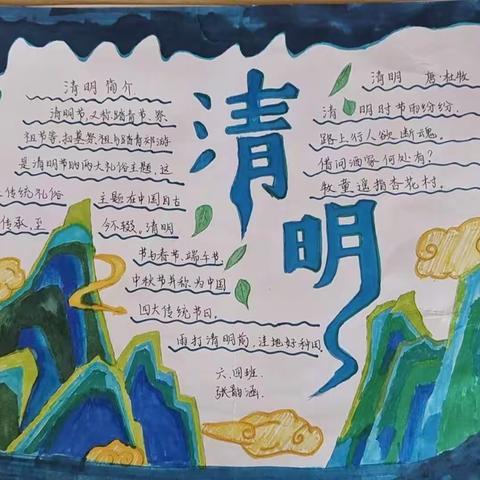 清明
清明简介
清明节,又称踏青节、祭
祖节等,扫墓祭祖与踏青郊游
是清明节的两大礼俗主题,这
传统礼俗
主题在中国自古
传承,至
今不辍。清明
节与春节、端午节
中秋节并称为中国
四大传统节日。
雨打清明前,洼地好种田
六.四班
张韵涵.
清明 唐·杜牧
清明时节雨纷纷.
路上行人欲断魂.
借问酒家何处有?
牧童遥指杏花村.